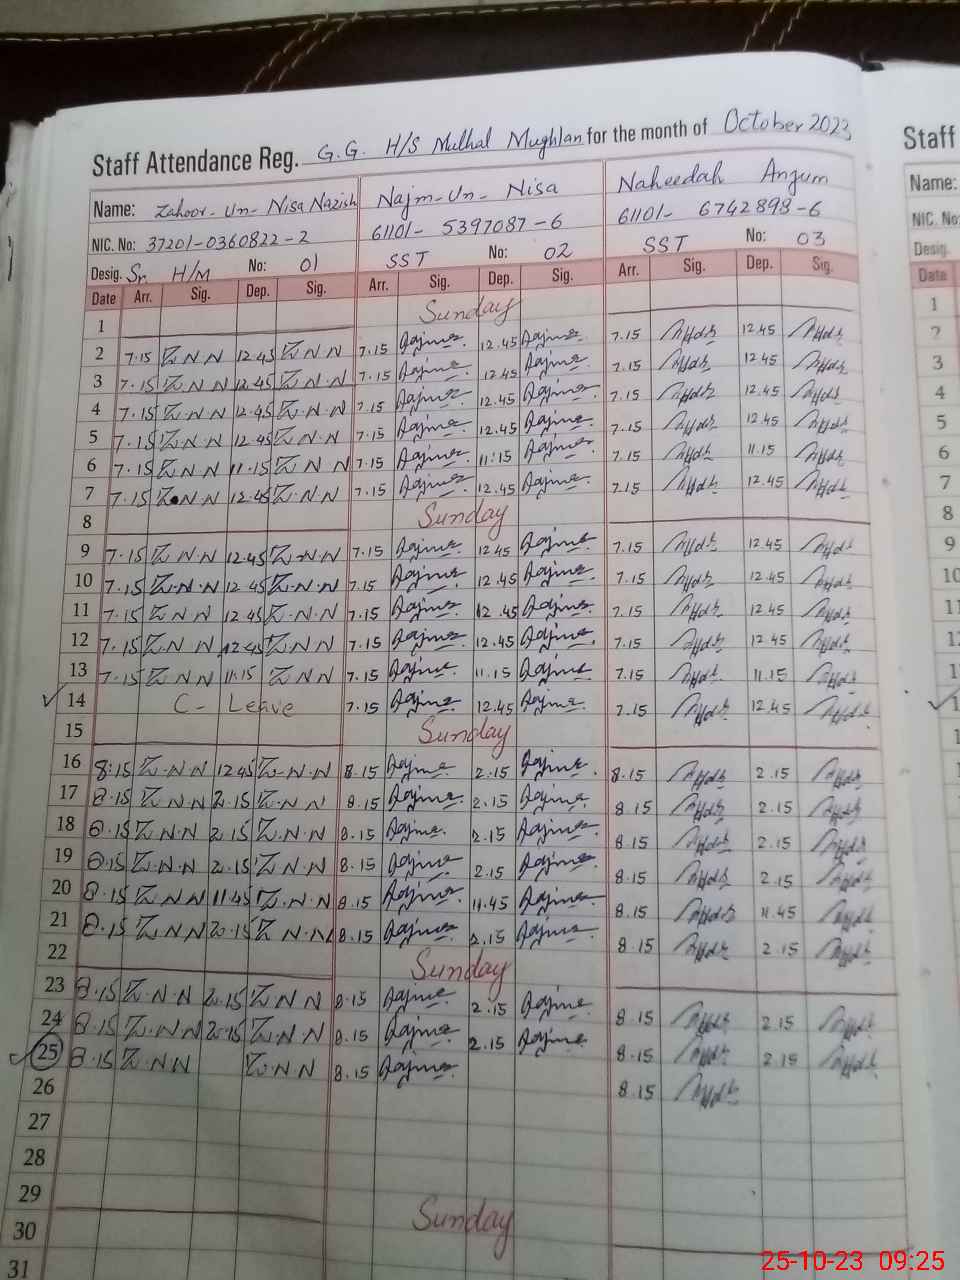 Staff Attendance Reg. G.G. H/S Mulhal Mughlan for the month of October 2023
Name: Zahoor-Un-Nisa Nazish Najm-Un-Nisa Naheedah Anjum
NIC. No: 37201-0360822-2 61101-5397087-6 61101-6742898-6
Desig. Sr. H/M No: 01 SST No: 02 SST No: 03
Date Arr. Sig. Dep. Sig. Arr. Sig. Dep. Sig. Arr. Sig. Dep. Sig.
1 Sunday
2 7.15 Z N N 12.45 Z N N 7.15 12.45 7.15 12.45
3 7.15 Z N N 12.45 Z N N 7.15 12.45 7.15 12.45
4 7.15 Z N N 12.45 Z N N 7.15 12.45 7.15 12.45
5 7.15 Z N N 12.45 Z N N 7.15 12.45 7.15 12.45
6 7.15 Z N N 11.15 Z N N 7.15 11:15 7.15 11.15
7 7.15 Z N N 12.45 Z N N 7.15 12.45 7.15 12.45
8 Sunday
9 7.15 Z N N 12.45 Z N N 7.15 12.45 7.15 12.45
10 7.15 Z N N 12.45 Z N N 7.15 12.45 7.15 12.45
11 7.15 Z N N 12.45 Z N N 7.15 12.45 7.15 12.45
12 7.15 Z N N 12.45 Z N N 7.15 12.45 7.15 12.45
13 7.15 Z N N 11.15 Z N N 7.15 11.15 7.15 11.15
14 C- Leave 7.15 12.45 7.15 12.45
15 Sunday
16 8.15 Z N N 12 45 Z N N 8.15 2.15 8.15 2.15
17 8.15 Z N N 2.15 Z N N 8.15 2.15 8.15 2.15
18 8.15 Z N N 2.15 Z N N 8.15 2.15 8.15 2.15
19 8.15 Z N N 2.15 Z N N 8.15 2.15 8.15 2.15
20 8.15 Z N N 11.45 Z N N 8.15 11.45 8.15 11.45
21 8.15 Z N N 2.15 Z N N 8.15 2.15 8.15 2.15
22 Sunday
23 8.15 Z N N 2.15 Z N N 8.15 2.15 8.15 2.15
24 8.15 Z N N 2.15 Z N N 8.15 2.15 8.15 2.15
25 8.15 Z N N Z N N 8.15 8.15
26
27
28
29 Sunday
30
31
Staff
Name:
NIC. No:
Desig.
Date
1
2
3
4
5
6
7
8
9
10
25-10-23 09:25